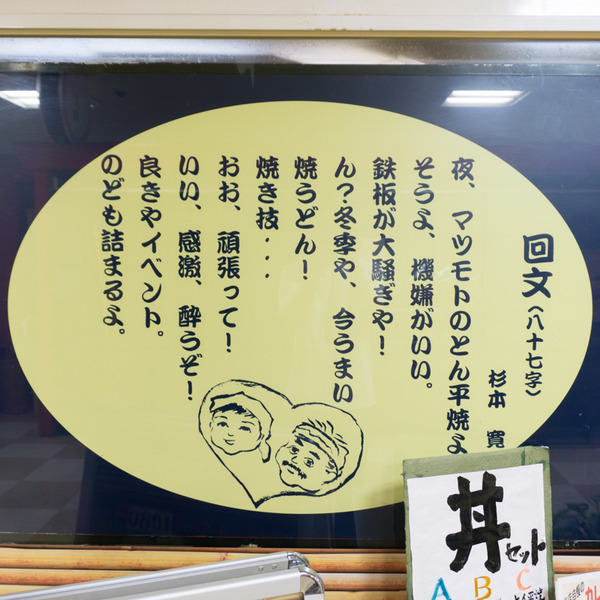 回文（八十七字）
杉本 寛
夜、マツモトのとん平焼よ
そうよ、機嫌がいい。
鉄板が大騒ぎや！
ん？冬季や、今うまい
焼うどん！
焼き技・・・
おお、頑張って！
いい、感激、酔うぞ！
良きやイベント。
のども詰まるよ。
丼セット
A B C